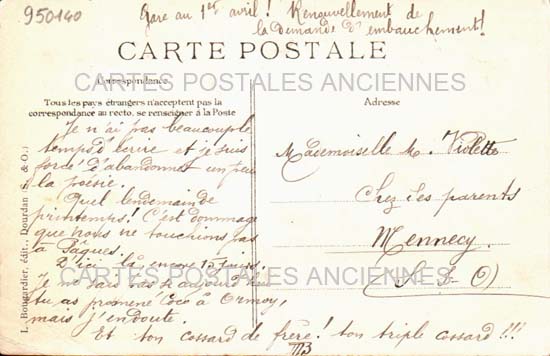 950140
Gare au 1er avril! Renouvellement de
la Demande d'embauchement!
CARTE POSTALE
CARTES POSTALES ANCIENNES
Correspondance
Tous les pays étrangers n'acceptent pas la
correspondance au recto, se renseigner à la Poste
Adresse
Je n'ai pas beaucoup le
temps d'écrire et je suis
forcé d'abandonner un peu
la poésie.
Quel lendemain de
printemps! C'est dommage
que nous ne touchions pas
à Pâques.
D'ici là encore 15 jours.
Je ne sais pas si aujourd'hui
tu as promené Coco à Ormoy,
mais j'en doute.
Et ton cossard de frère! ton triple cossard!!!
MB
Mademoiselle M. Violette
Chez ses parents
Mennecy.
(S-&-O)
CARTES POSTALES ANCIENNES
L. Bougardier, édit., Dourdan (S.-&-O.)